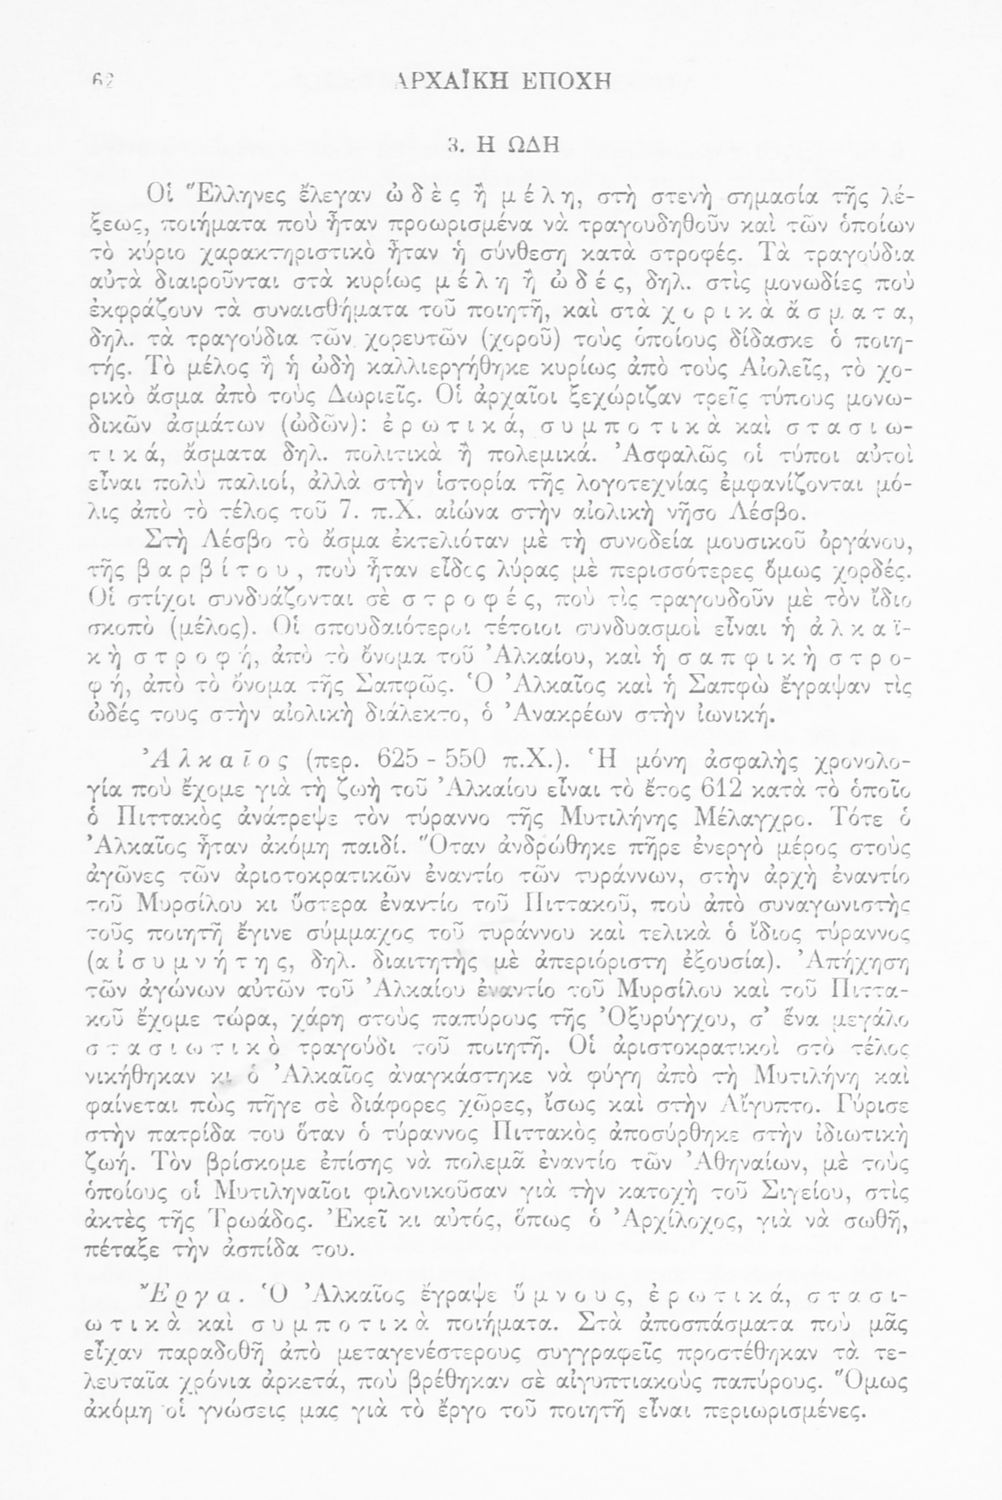 62 ΑΡΧΑΪΚΗ ΕΠΟΧΗ
3. Η ΩΔΗ
Οἱ Ἕλληνες ἔλεγαν ὠδὲς ἢ μέλη, στὴ στενὴ σημασία τῆς λέ-
ξεως, ποιήματα ποὺ ἦταν προωρισμένα νὰ τραγουδηθοῦν καὶ τῶν ὁποίων
τὸ κύριο χαρακτηριστικὸ ἦταν ἡ σύνθεση κατὰ στροφές. Τὰ τραγούδια
αὐτὰ διαιροῦνται στὰ κυρίως μέλη ἢ ὠδές, δηλ. στὶς μονωδίες ποὺ
ἐκφράζουν τὰ συναισθήματα τοῦ ποιητῆ, καὶ στὰ χορικὰ ἄσματα,
δηλ. τὰ τραγούδια τῶν χορευτῶν (χοροῦ) τοὺς ὁποίους δίδασκε ὁ ποιη-
τής. Τὸ μέλος ἢ ἡ ὠδὴ καλλιεργήθηκε κυρίως ἀπὸ τοὺς Αἰολεῖς, τὸ χο-
ρικὸ ἄσμα ἀπὸ τοὺς Δωριεῖς. Οἱ ἀρχαῖοι ξεχώριζαν τρεῖς τύπους μονω-
δικῶν ἀσμάτων (ὠδῶν): ἐρωτικά, συμποτικὰ καὶ στασιω-
τικά, ἄσματα δηλ. πολιτικὰ ἢ πολεμικά. Ἀσφαλῶς οἱ τύποι αὐτοὶ
εἶναι πολὺ παλιοί, ἀλλὰ στὴν ἱστορία τῆς λογοτεχνίας ἐμφανίζονται μό-
λις ἀπὸ τὸ τέλος τοῦ 7. π.Χ. αἰώνα στὴν αἰολικὴ νῆσο Λέσβο.
Στὴ Λέσβο τὸ ἄσμα ἐκτελιόταν μὲ τὴ συνοδεία μουσικοῦ ὀργάνου,
τῆς βαρβίτου, ποὺ ἦταν εἶδος λύρας μὲ περισσότερες ὅμως χορδές.
Οἱ στίχοι συνδυάζονται σὲ στροφές, ποὺ τὶς τραγουδοῦν μὲ τὸν ἴδιο
σκοπὸ (μέλος). Οἱ σπουδαιότεροι τέτοιοι συνδυασμοὶ εἶναι ἡ ἀλκαϊ-
κὴ στροφή, ἀπὸ τὸ ὄνομα τοῦ Ἀλκαίου, καὶ ἡ σαπφικὴ στρο-
φή, ἀπὸ τὸ ὄνομα τῆς Σαπφῶς. Ὁ Ἀλκαῖος καὶ ἡ Σαπφὼ ἔγραψαν τὶς
ὠδές τους στὴν αἰολικὴ διάλεκτο, ὁ Ἀνακρέων στὴν ἰωνική.
Ἀλκαῖος (περ. 625 - 550 π.Χ.). Ἡ μόνη ἀσφαλὴς χρονολο-
γία ποὺ ἔχομε γιὰ τὴ ζωὴ τοῦ Ἀλκαίου εἶναι τὸ ἔτος 612 κατὰ τὸ ὁποῖο
ὁ Πιττακὸς ἀνάτρεψε τὸν τύραννο τῆς Μυτιλήνης Μέλαγχρο. Τότε ὁ
Ἀλκαῖος ἦταν ἀκόμη παιδί. Ὅταν ἀνδρώθηκε πῆρε ἐνεργὸ μέρος στοὺς
ἀγῶνες τῶν ἀριστοκρατικῶν ἐναντίο τῶν τυράννων, στὴν ἀρχὴ ἐναντίο
τοῦ Μυρσίλου κι ὕστερα ἐναντίο τοῦ Πιττακοῦ, ποὺ ἀπὸ συναγωνιστὴς
τοῦς ποιητῆ ἔγινε σύμμαχος τοῦ τυράννου καὶ τελικὰ ὁ ἴδιος τύραννος
(αἰσυμνήτης, δηλ. διαιτητὴς μὲ ἀπεριόριστη ἐξουσία). Ἀπήχηση
τῶν ἀγώνων αὐτῶν τοῦ Ἀλκαίου ἐναντίο τοῦ Μυρσίλου καὶ τοῦ Πιττα-
κοῦ ἔχομε τώρα, χάρη στοὺς παπύρους τῆς Ὀξυρύγχου, σ' ἕνα μεγάλο
στασιωτικὸ τραγούδι τοῦ ποιητῆ. Οἱ ἀριστοκρατικοὶ στὸ τέλος
νικήθηκαν κι ὁ Ἀλκαῖος ἀναγκάστηκε νὰ φύγη ἀπὸ τὴ Μυτιλήνη καὶ
φαίνεται πὼς πῆγε σὲ διάφορες χῶρες, ἴσως καὶ στὴν Αἴγυπτο. Γύρισε
στὴν πατρίδα του ὅταν ὁ τύραννος Πιττακὸς ἀποσύρθηκε στὴν ἰδιωτικὴ
ζωή. Τὸν βρίσκομε ἐπίσης νὰ πολεμᾶ ἐναντίο τῶν Ἀθηναίων, μὲ τοὺς
ὁποίους οἱ Μυτιληναῖοι φιλονικοῦσαν γιὰ τὴν κατοχὴ τοῦ Σιγείου, στὶς
ἀκτὲς τῆς Τρωάδος. Ἐκεῖ κι αὐτός, ὅπως ὁ Ἀρχίλοχος, γιὰ νὰ σωθῆ,
πέταξε τὴν ἀσπίδα του.
Ἔργα. Ὁ Ἀλκαῖος ἔγραψε ὕμνους, ἐρωτικά, στασι-
ωτικὰ καὶ συμποτικὰ ποιήματα. Στὰ ἀποσπάσματα ποὺ μᾶς
εἶχαν παραδοθῆ ἀπὸ μεταγενέστερους συγγραφεῖς προστέθηκαν τὰ τε-
λευταῖα χρόνια ἀρκετά, ποὺ βρέθηκαν σὲ αἰγυπτιακοὺς παπύρους. Ὅμως
ἀκόμη οἱ γνώσεις μας γιὰ τὸ ἔργο τοῦ ποιητῆ εἶναι περιωρισμένες.